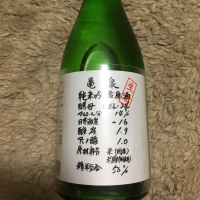 亀泉
純米吟醸原酒
酵母 CEL-24
アルコール分 14%
日本酒度 -16
酸度 1.9
アミノ酸 1.0
原材料名 米(国産)
精米歩合 50%
生